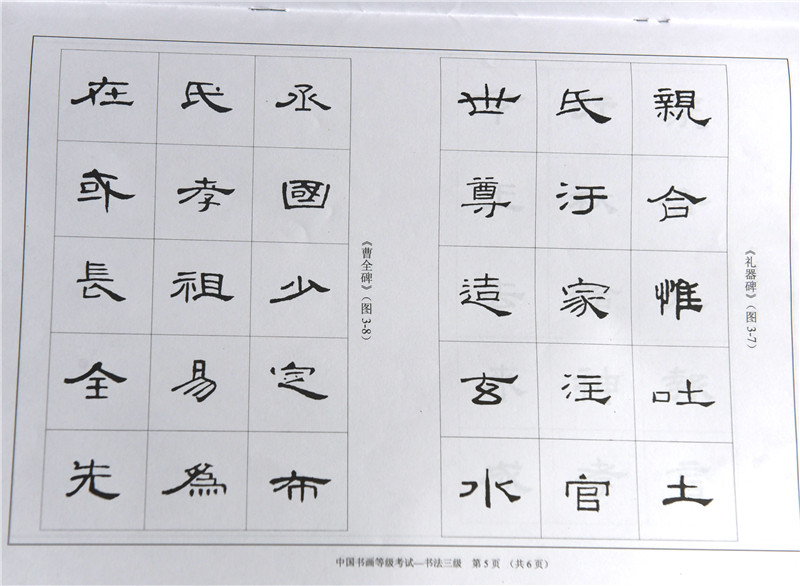 《礼器碑》（图 3-7）
親合惟吐土
氏汙家注官
世尊造玄水
《曹全碑》（图 3-8）
丞國少定布
氏孝祖易爲
在或長全先
中国书画等级考试—书法三级 第 5 页 （共 6 页）